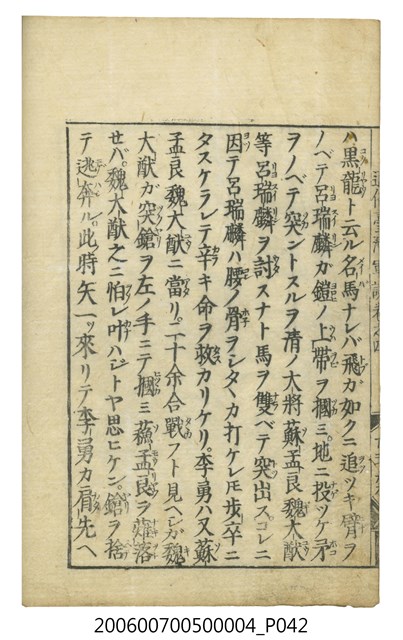 ハ黒龍ト云ル名馬ナレバ飛カ如クニ追ツキ臂ヲ
ノベテ呂瑞麟カ鎧ノ上帯ヲ摑ミ地ニ投ツケ矛
ヲノベテ突ントスルヲ清ノ大將蘇孟良魏大猷
等呂瑞麟ヲ討スナト馬ヲ雙ベテ突出スコレニ
因テ呂瑞麟ハ腰ノ骨ヲシタヽカ打ケレモ歩卒ニ
タスケラレテ辛キ命ヲ救カリケリ。李勇ハ又蘇
孟良魏大猷ニ當リ。二十余合戰フト見ヘシガ魏
大猷ガ突鎗ヲ左ノ手ニテ摑ミ蘓孟良ヲ薙落
セバ。魏大猷之ニ怕レ叶ハジトヤ思ヒケン。鎗ヲ捨
テ逃奔ル。此時矢一ッ來リテ李勇カ肩先ヘ
200600700500004_P042